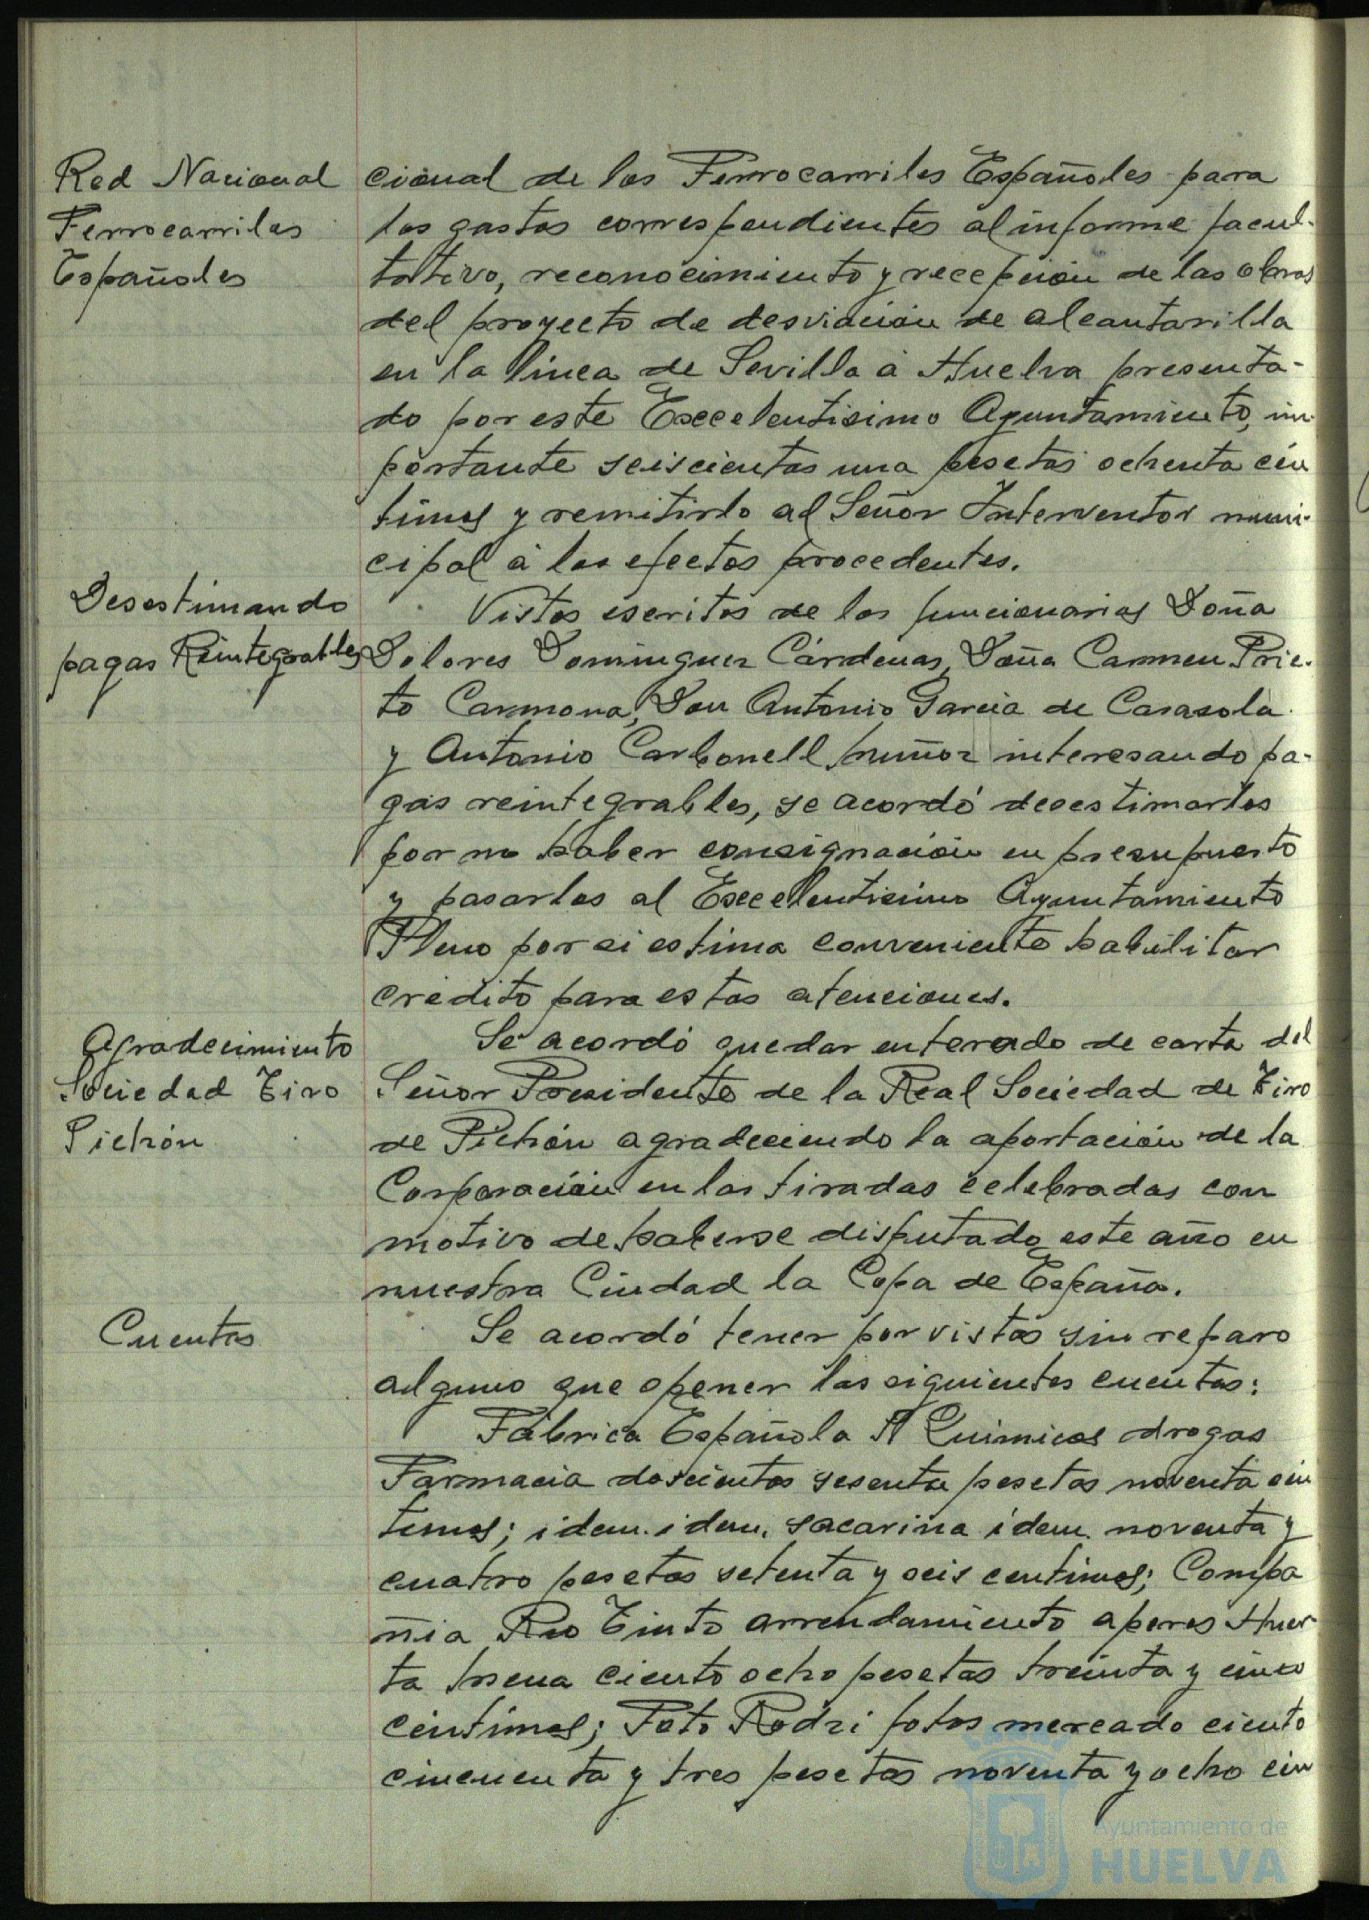 Red Nacional
Ferrocarriles
Españoles
cional de los Ferrocarriles Españoles para
los gastos correspondientes al informe facul-
tativo, reconocimiento y recepción de las obras
del proyecto de desviación de alcantarilla
en la línea de Sevilla a Huelva presenta-
do por este Excelentisimo Ayuntamiento, im-
portante seiscientas una pesetas ochenta cén
timos y remitirlo al Señor Interventor muni-
cipal á los efectos procedentes.
Desestimando
pagas Reintegrables
Vistos escritos de los funcionarios Doña
Dolores Dominguez Cárdenas, Doña Carmen Prie-
to Carmona, Don Antonio Garcia de Casasola
y Antonio Carbonell Muñoz interesando pa-
gas reintegrables, se acordó desestimarlos
por no haber consignación en presupuesto
y pasarlos al Excelentisimo Ayuntamiento
Pleno por si estima conveniente habilitar
crédito para estas atenciones.
Agradecimiento
Sociedad Tiro
Pichón
Se acordó quedar enterado de carta del
Señor Presidente de la Real Sociedad de Tiro
de Pichón agradeciendo la aportación de la
Corporación en las tiradas celebradas con
motivo de haberse disputado este año en
nuestra Ciudad la Copa de España.
Cuentas
Se acordó tener por vistas sin reparo
alguno que oponer las siguientes cuentas:
Fábrica Española Quimicos drogas
Farmacia doscientas sesenta pesetas noventa cén
timos; idem. idem. sacarina idem. noventa y
cuatro pesetas setenta y seis centimos; Compa
ñia Rio Tinto arrendamiento aperos Huer-
ta Mena ciento ocho pesetas treinta y cinco
céntimos; Foto Rodri fotos mercado ciento
cincuenta y tres pesetas noventa y ocho cén
Ayuntamiento de
HUELVA